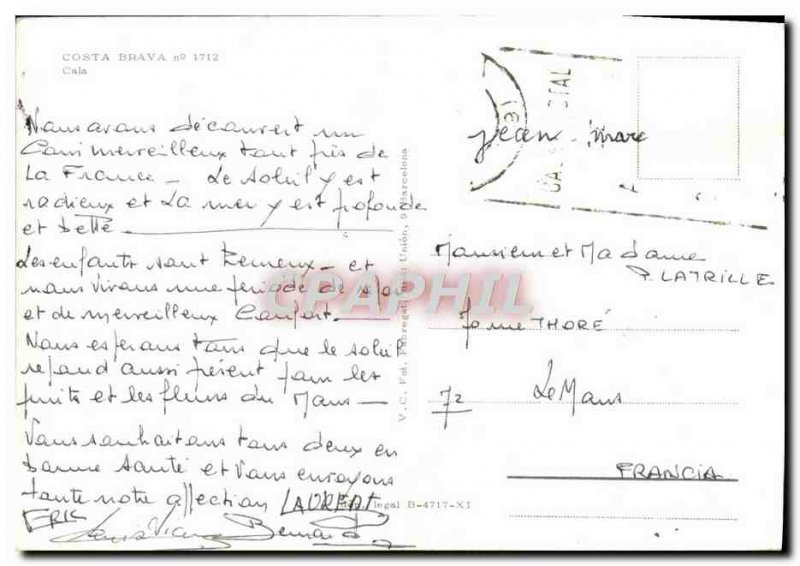 COSTA BRAVA nº 1712
Cala
Nous avons découvert un
Coin merveilleux tout près de
La France — Le soleil y est
radieux et La mer y est profonde
et belle
Les enfants sont heureux — et
nous vivons une période de
et de merveilleux Confort.
Nous espérons tous que le soleil
repand aussi présent pour les
fruits et les fleurs du Mans —
Vous souhaitons tous deux en
bonne santé et Vous envoyons
toute notre affection LAURENT
ERIC
Bernard
legal B-4717-XI
Unión, Barcelona
jean-marc
Monsieur et Madame
P. LATRILLE
rue THORÉ
72 Le Mans
FRANCIA
CPAPHIL